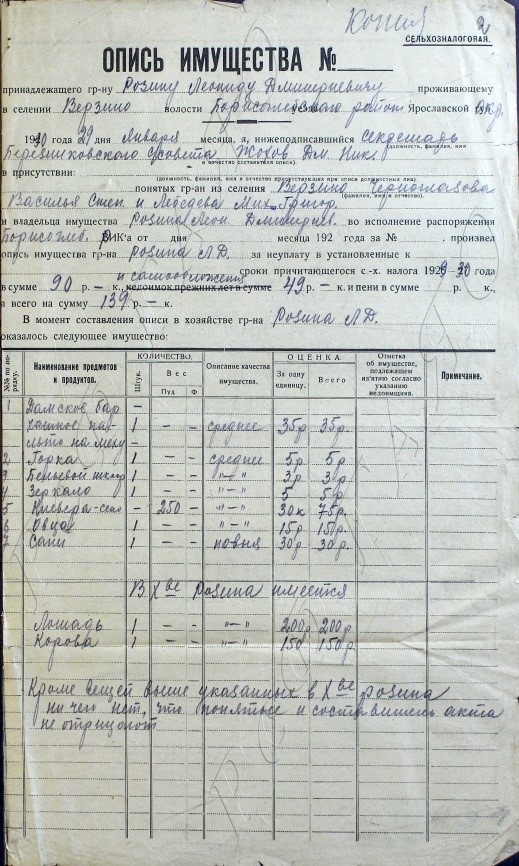 Копия
2
СЕЛЬХОЗНАЛОГОВАЯ.
ОПИСЬ ИМУЩЕСТВА №
принадлежащего гр-ну Розину Леониду Дмитриевичу проживающему
в селении Верзино волости Борисоглебского район Ярославской губ. окр.
1930 года 29 дня января месяца, я, нижеподписавшийся секретарь
(должность, фамилия, имя
Беревиковского С/совета Жохов Дм. Ник.
и отчество составителя описи).
в присутствии:
(должность, фамилия, имя и отчество присутствующих при описи должностных лиц).
понятых гр-ан из селения Верзино Черноглазова
(фамилия, имя и отчество).
Василья Степ. и Лебедева Мих. Григор.
и владельца имущества Розина Леон. Дмитриев. во исполнение распоряжения
Борисоглеб. РИК'а от дня месяца 192 года за № , произвел
опись имущества гр-на Розина Л.Д. за неуплату в установленные к
сроки причитающегося с.-х. налога 1929-30 года
и самообложения
в сумме 90 р. – к. недоимок прежних лет в сумме 49 р. – к. и пени в сумме р. к.,
а всего на сумму 139 р. – к.
В момент составления описи в хозяйстве гр-на Розина Л.Д.
оказалось следующее имущество:
№№ по порядку. Наименование предметов и продуктов. КОЛИЧЕСТВО. Штук. Вес Пуд Ф Описание качества имущества. ОЦЕНКА. За одну единицу. Всего Отметка об имуществе, подлежащем изъятию согласно указанию недоимщика. Примечание.
1 Дамское бар –
хатное па- 1 – – среднее 35р 35р.
льто на меху –
2 Горка 1 – – среднее 5р 5р
3 Бельевой шкаф 1 – – "–" 3р 3р
4 Зеркало 1 – – "–" 5 5р
5 Клевера-сено – 250 – "–" 30к 75р.
6 Овца 1 – – "–" 15р 15р.
7 Сани 1 – – новыя 30р 30р.
В Х-ве Розина имеется
Лошадь 1 – – "–" 200р 200р
Корова 1 – – "–" 150 150р
Кроме вещей выше указанных в Х-ве Розина
ни чего нет, что понятые и составитель акта
не отрицают